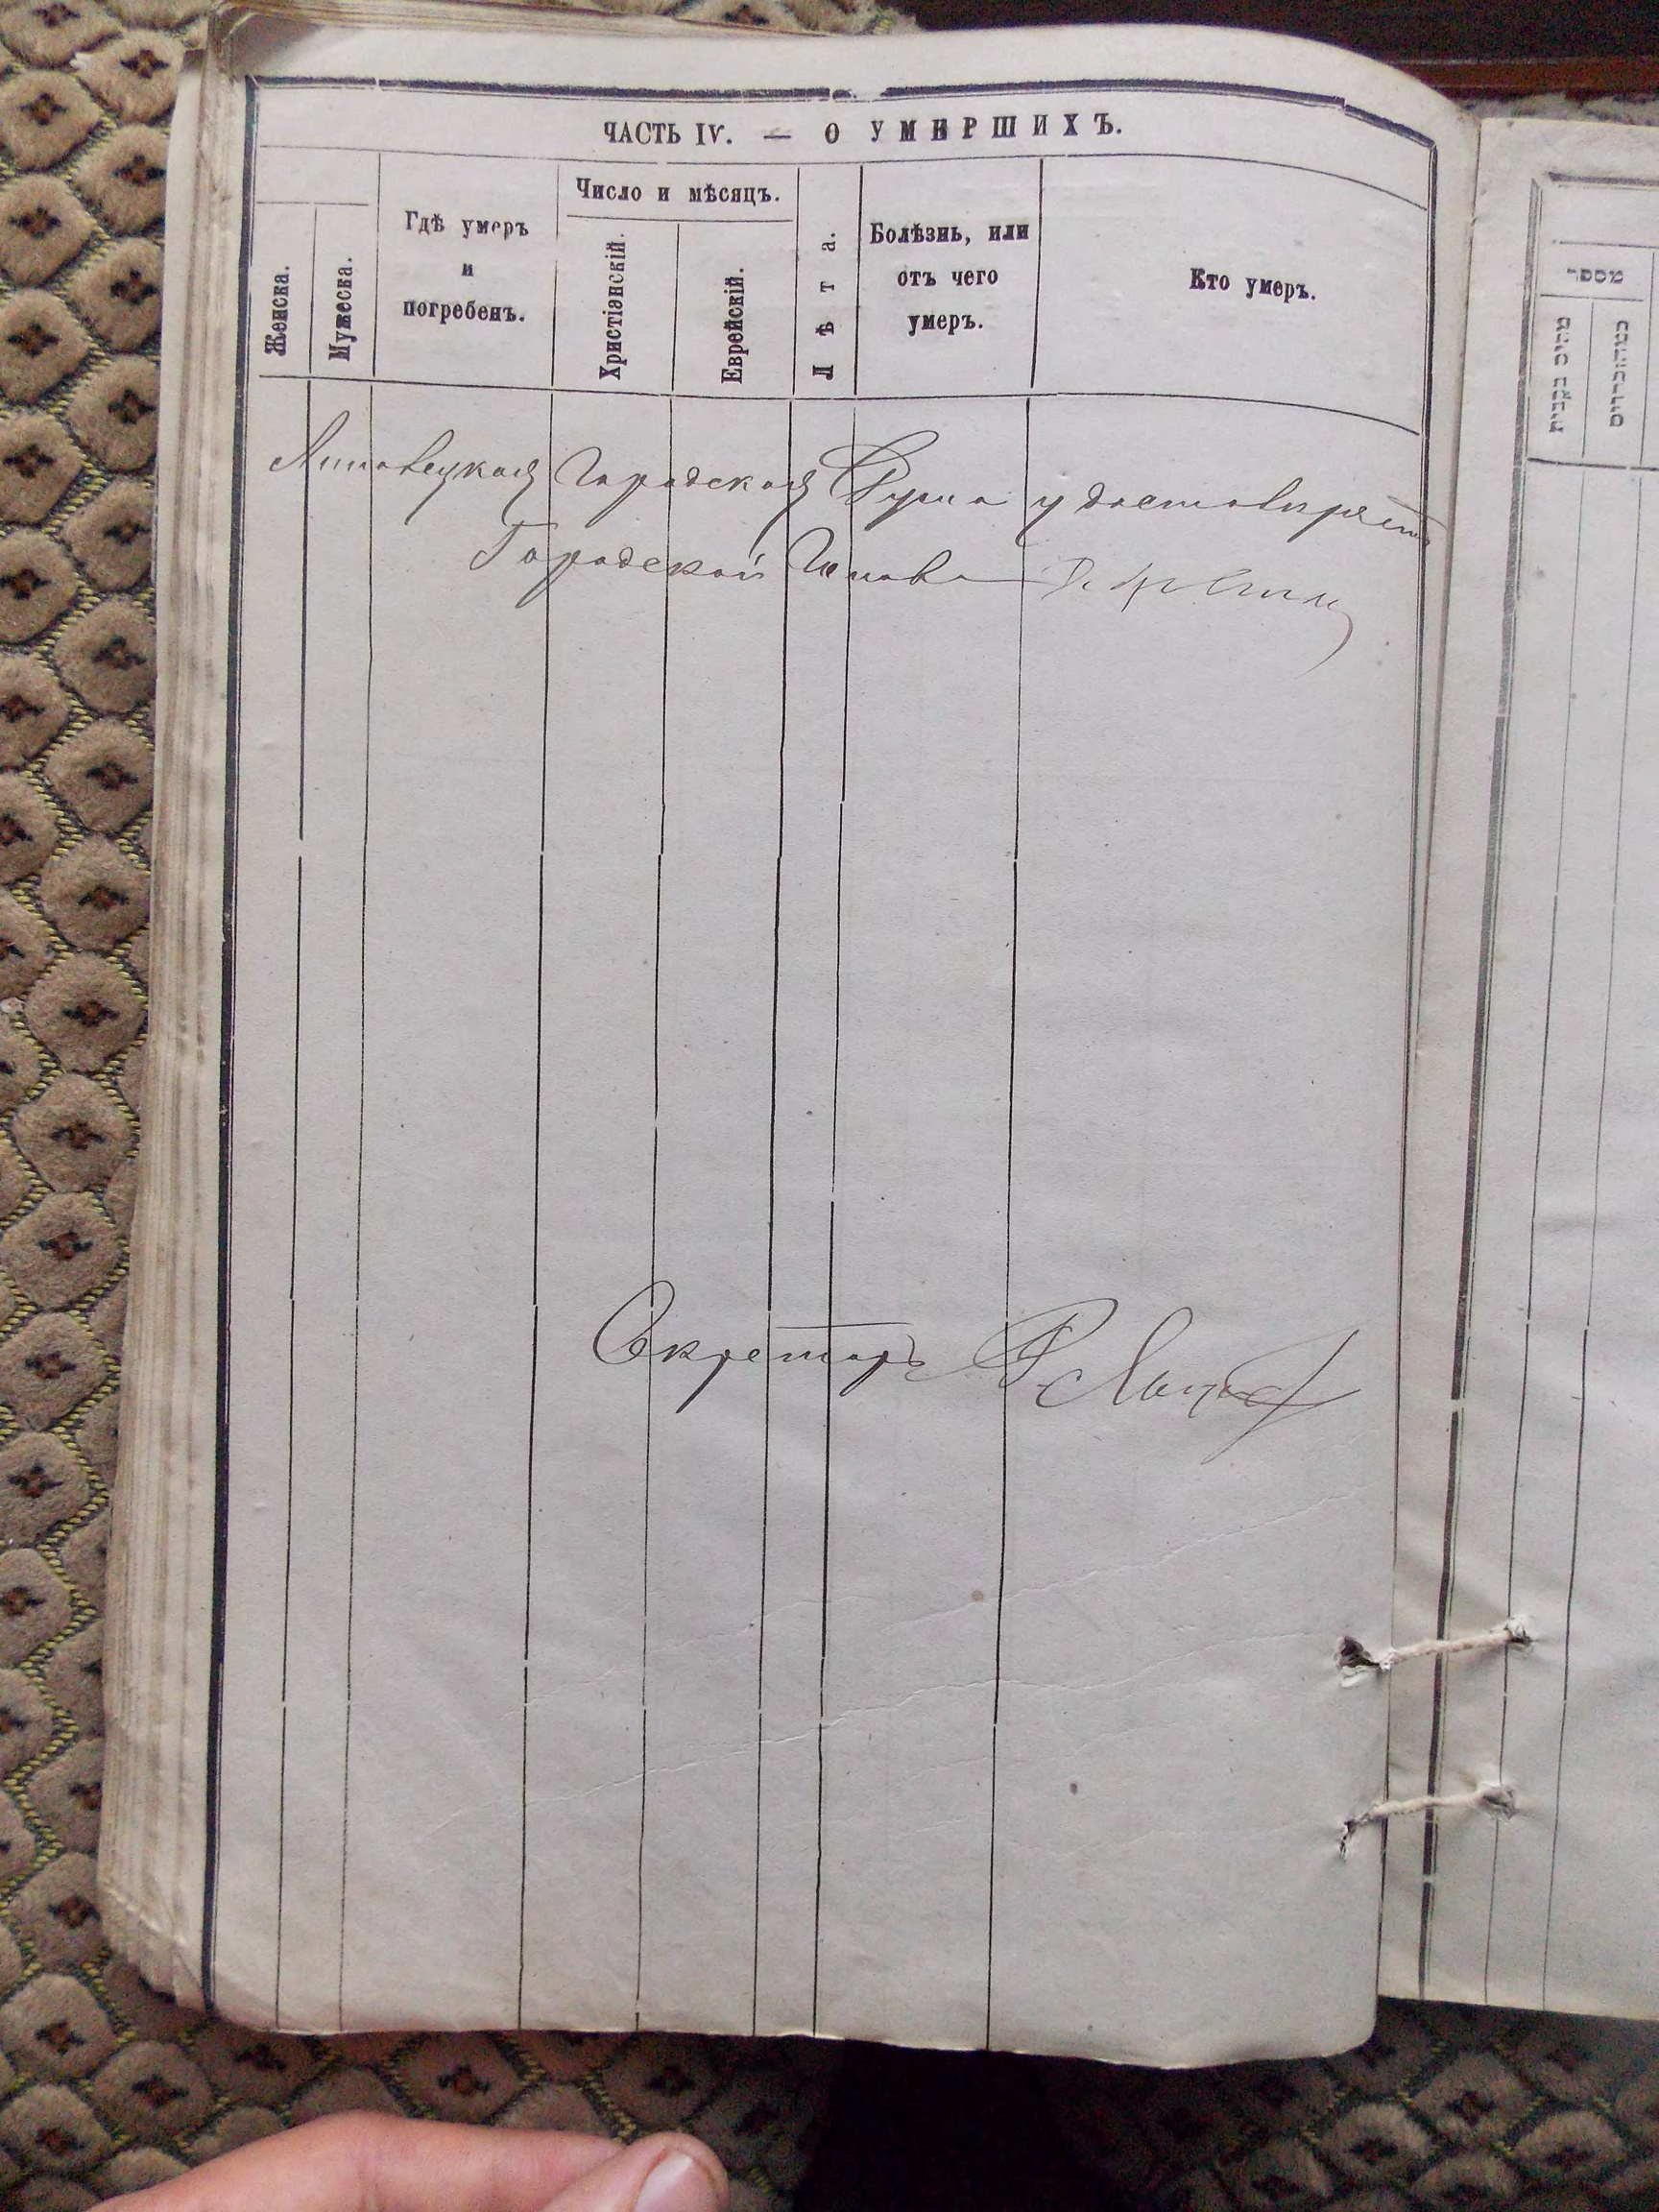 ЧАСТЬ IV. — О УМЕРШИХЪ.
Женска.
Мужеска.
Гдѣ умеръ
и
погребенъ.
Число и мѣсяцъ.
Христіанскій.
Еврейскій.
Лѣта.
Болѣзнь, или
отъ чего
умеръ.
Кто умеръ.
Липовецкая Городская Дума удостовѣряетъ
Городской Голова
Секретарь
מספר